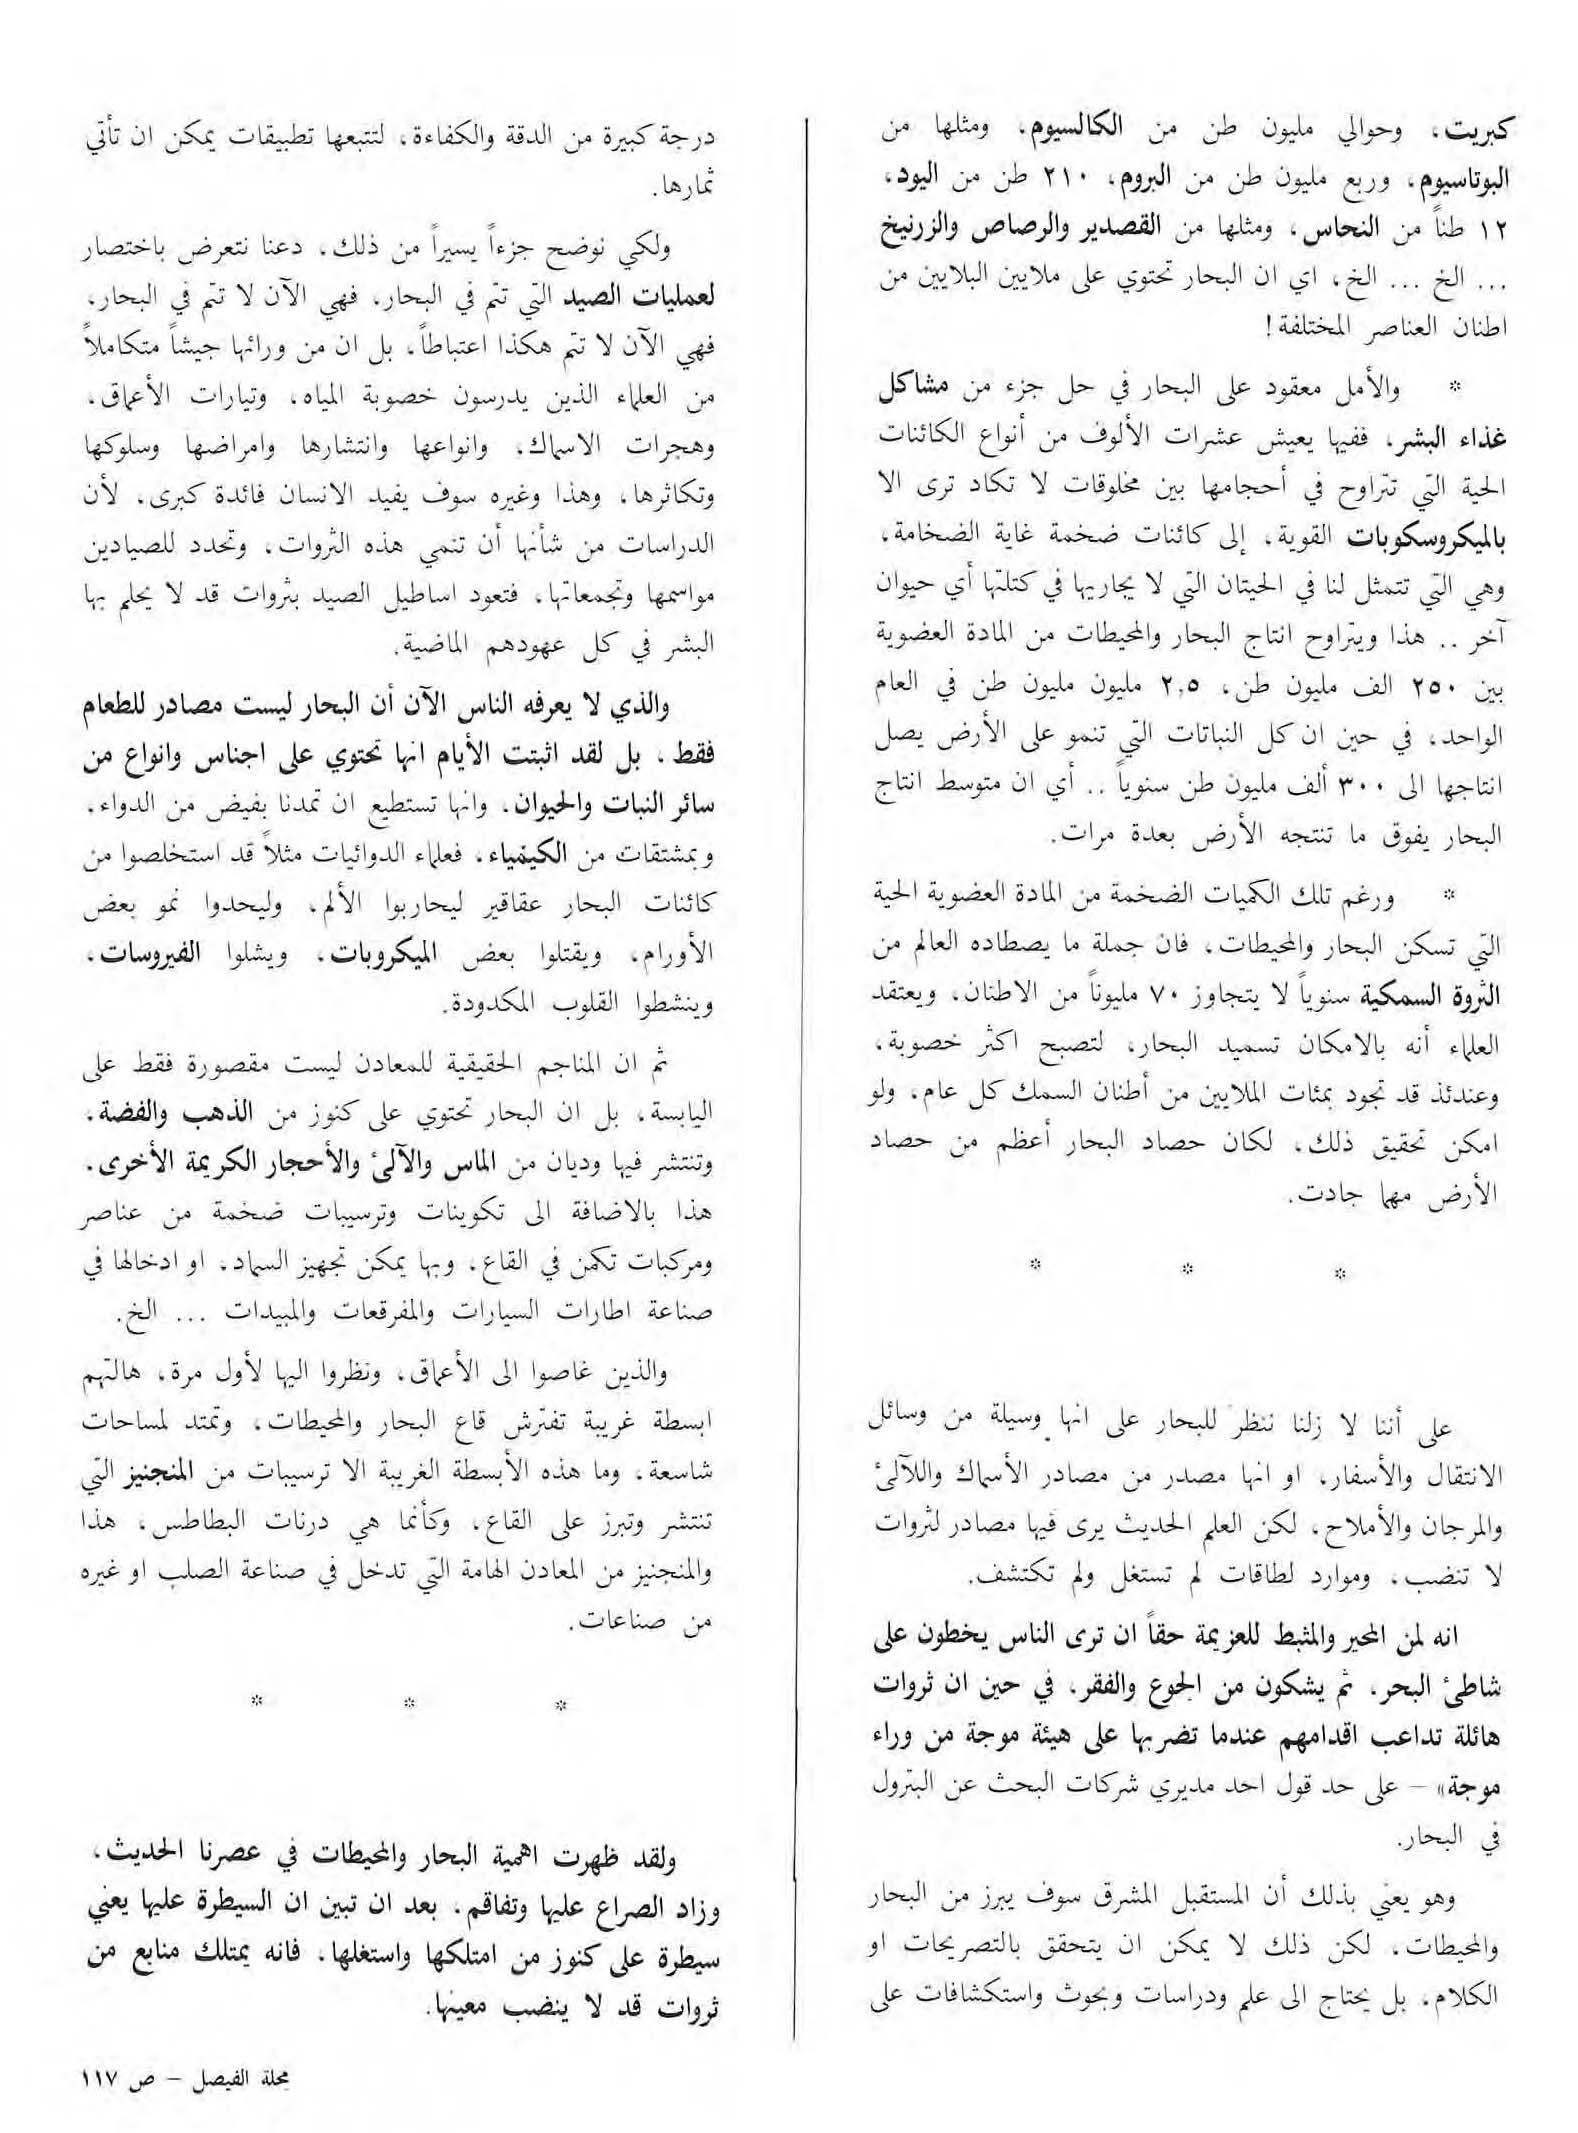 كبريت، وحوالي مليون طن من الكالسيوم، ومثلها من
البوتاسيوم، وربع مليون طن من البروم، ٢١٠ طن من اليود،
١٢ طناً من النحاس، ومثلها من القصدير والرصاص والزرنيخ
... الخ ... الخ، اي ان البحار تحتوي على ملايين البلايين من
اطنان العناصر المختلفة!
* والأمل معقود على البحار في حل جزء من مشاكل
غذاء البشر، ففيها يعيش عشرات الألوف من أنواع الكائنات
الحية التي تتراوح في أحجامها بين مخلوقات لا تكاد ترى الا
بالميكروسكوبات القوية، إلى كائنات ضخمة غاية الضخامة،
وهي التي تتمثل لنا في الحيتان التي لا يجاريها في كتلتها أي حيوان
آخر .. هذا ويتراوح انتاج البحار والمحيطات من المادة العضوية
بين ٢٥٠ الف مليون طن، ٢,٥ مليون مليون طن في العام
الواحد، في حين ان كل النباتات التي تنمو على الأرض يصل
انتاجها الى ٣٠٠ ألف مليون طن سنوياً .. أي ان متوسط انتاج
البحار يفوق ما تنتجه الأرض بعدة مرات.
* ورغم تلك الكميات الضخمة من المادة العضوية الحية
التي تسكن البحار والمحيطات، فان جملة ما يصطاده العالم من
الثروة السمكية سنوياً لا يتجاوز ٧٠ مليوناً من الاطنان، ويعتقد
العلماء أنه بالامكان تسميد البحار، لتصبح اكثر خصوبة،
وعندئذ قد تجود بمئات الملايين من أطنان السمك كل عام، ولو
امكن تحقيق ذلك، لكان حصاد البحار أعظم من حصاد
الأرض مهما جادت.
* * *
على أننا لا زلنا ننظر للبحار على انها وسيلة من وسائل
الانتقال والأسفار، او انها مصدر من مصادر الأسماك واللآلئ
والمرجان والأملاح، لكن العلم الحديث يرى فيها مصادر لثروات
لا تنضب، وموارد لطاقات لم تستغل ولم تكتشف.
انه لمن المحير والمثبط للعزيمة حقاً ان ترى الناس يخطون على
شاطئ البحر، ثم يشكون من الجوع والفقر، في حين ان ثروات
هائلة تداعب اقدامهم عندما تضربها على هيئة موجة من وراء
موجة» – على حد قول احد مديري شركات البحث عن البترول
في البحار.
وهو يعني بذلك أن المستقبل المشرق سوف يبرز من البحار
والمحيطات، لكن ذلك لا يمكن ان يتحقق بالتصريحات او
الكلام، بل يحتاج الى علم ودراسات وبحوث واستكشافات على
درجة كبيرة من الدقة والكفاءة، لتتبعها تطبيقات يمكن ان تأتي
ثمارها.
ولكي نوضح جزءاً يسيراً من ذلك، دعنا نتعرض باختصار
لعمليات الصيد التي تتم في البحار، فهي الآن لا تتم في البحار،
فهي الآن لا تتم هكذا اعتباطاً، بل ان من ورائها جيشاً متكاملاً
من العلماء الذين يدرسون خصوبة المياه، وتيارات الأعماق،
وهجرات الاسماك، وانواعها وانتشارها وامراضها وسلوكها
وتكاثرها، وهذا وغيره سوف يفيد الانسان فائدة كبرى، لأن
الدراسات من شأنها أن تنمي هذه الثروات، وتحدد للصيادين
مواسمها وتجمعاتها، فتعود اساطيل الصيد بثروات قد لا يحلم بها
البشر في كل عهودهم الماضية.
والذي لا يعرفه الناس الآن أن البحار ليست مصادر للطعام
فقط، بل لقد اثبتت الأيام انها تحتوي على اجناس وانواع من
سائر النبات والحيوان، وانها تستطيع ان تمدنا بفيض من الدواء،
وبمشتقات من الكيمياء، فعلماء الدوائيات مثلاً قد استخلصوا من
كائنات البحار عقاقير ليحاربوا الألم، وليحدوا نمو بعض
الأورام، ويقتلوا بعض الميكروبات، ويشلوا الفيروسات،
وينشطوا القلوب المكدودة.
ثم ان المناجم الحقيقية للمعادن ليست مقصورة فقط على
اليابسة، بل ان البحار تحتوي على كنوز من الذهب والفضة،
وتنتشر فيها وديان من الماس والآلئ والأحجار الكريمة الأخرى،
هذا بالاضافة الى تكوينات وترسيبات ضخمة من عناصر
ومركبات تكمن في القاع، وبها يمكن تجهيز السماد، او ادخالها في
صناعة اطارات السيارات والمفرقعات والمبيدات ... الخ.
والذين غاصوا الى الأعماق، ونظروا اليها لأول مرة، هالتهم
ابسطة غريبة تفترش قاع البحار والمحيطات، وتمتد لمساحات
شاسعة، وما هذه الأبسطة الغريبة الا ترسيبات من المنجنيز التي
تنتشر وتبرز على القاع، وكأنما هي درنات البطاطس، هذا
والمنجنيز من المعادن الهامة التي تدخل في صناعة الصلب او غيره
من صناعات.
* * *
ولقد ظهرت اهمية البحار والمحيطات في عصرنا الحديث،
وزاد الصراع عليها وتفاقم، بعد ان تبين ان السيطرة عليها يعني
سيطرة على كنوز من امتلكها واستغلها، فانه يمتلك منابع من
ثروات قد لا ينضب معينها.
مجلة الفيصل – ص ١١٧